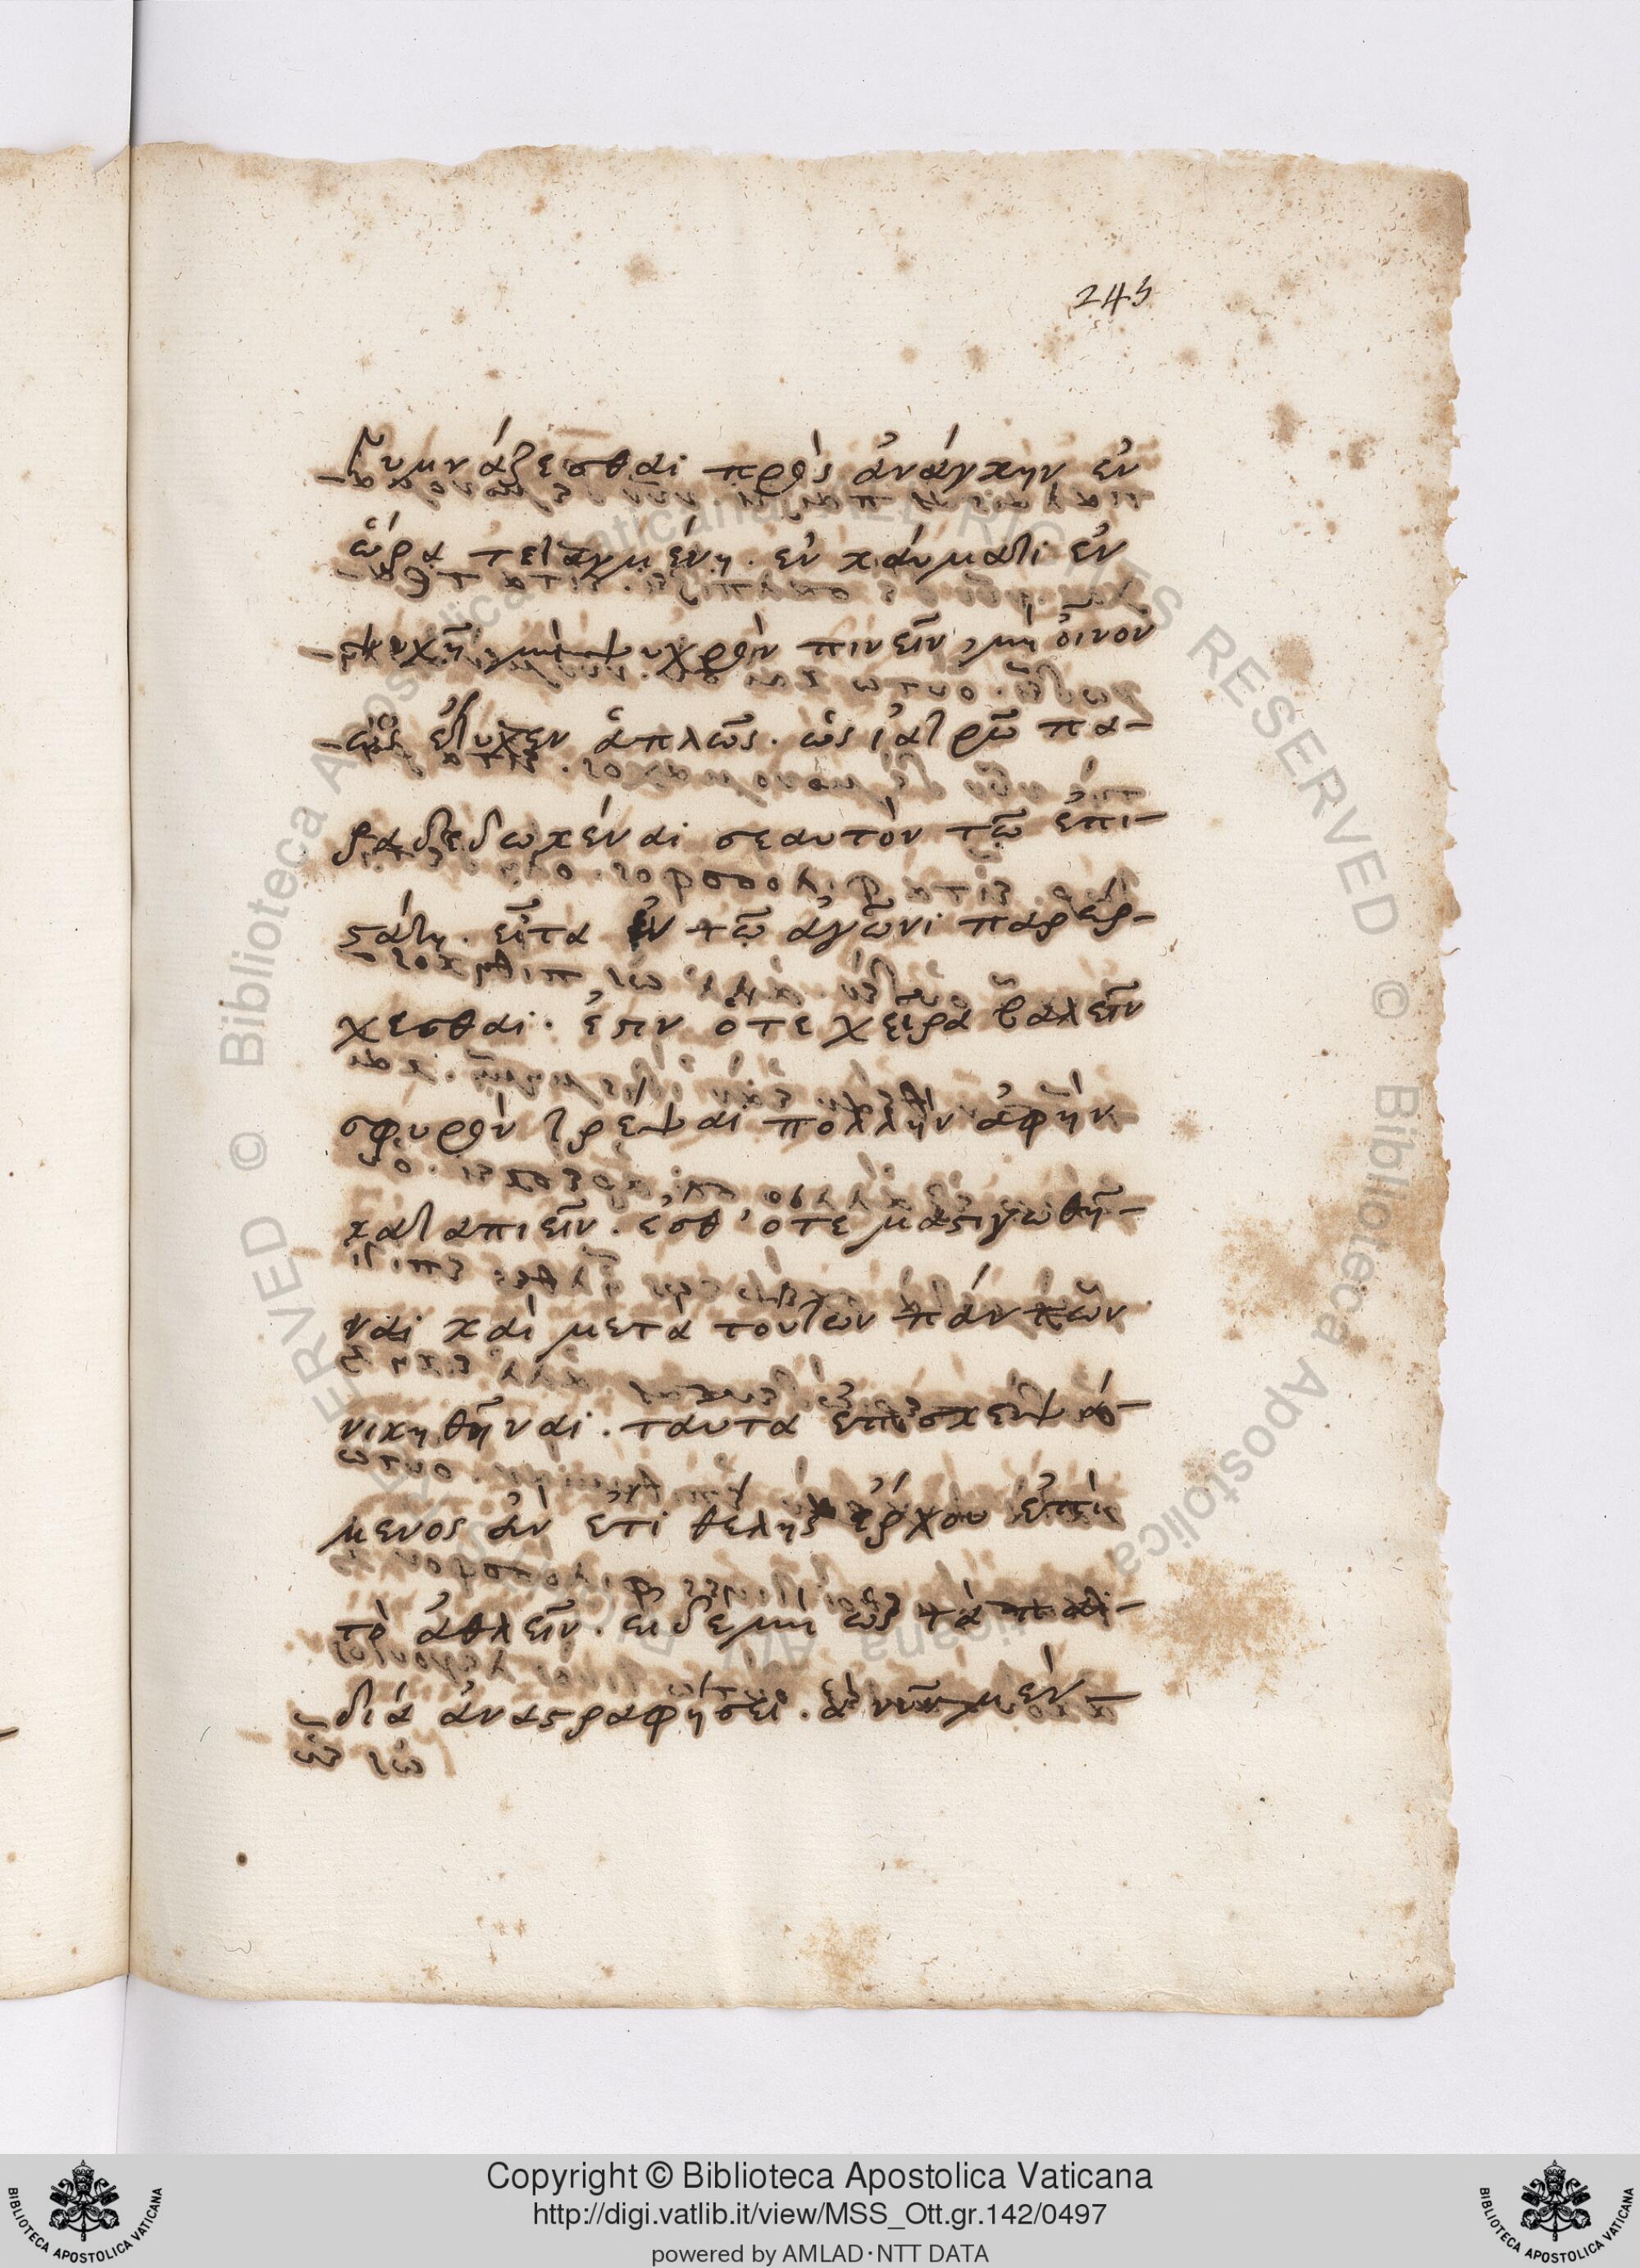 245
γυμνάζεσθαι πρὸς ἀνάγκην ἐν
ὥρα τεταγμένη. ἐν καύματι ἐν
ψυχῆ, μὴ ψυχρὸν πινεῖν, μὴ οἶνον
ὡς ἔτυχεν ἁπλῶς. ὡς ἰατρῷ πα-
ραδεδωκέναι σεαυτὸν τῷ ἐπι-
στάτη. εἶτα ἐν τῷ ἀγῶνι παρερ-
χεσθαι. ἔστιν ὅτε χεῖρα βαλεῖν
σφυρὸν στρέψαι πολλὴν ἁφὴν
καταπιεῖν. ἐσθ' ὅτε μαστιγωθῆ-
ναι καὶ μετὰ τούτων πάντων
νικηθῆναι. ταυτα ἐπισκεψά-
μενος ἂν ἔτι θελης ἔρχου ἐπὶ
τὸ ἀθλεῖν. ειδεμὴ ὡς τὰ παι-
δία ἀναστραφήσει. ἃ νῦν μὲν
Copyright © Biblioteca Apostolica Vaticana
http://digi.vatlib.it/view/MSS_Ott.gr.142/0497
powered by AMLAD·NTT DATA
BIBLIOTECA APOSTOLICA VATICANA
BIBLIOTECA APOSTOLICA VATICANA